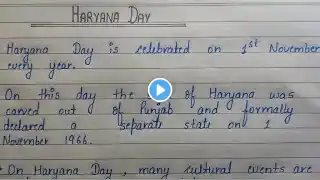 HARYANA DAY
Haryana Day is celebrated on 1st November
every year.
On this day the of Haryana was
carved out of Punjab and formally
declared a separate state on 1
November 1966.
On Haryana Day, many cultural events are